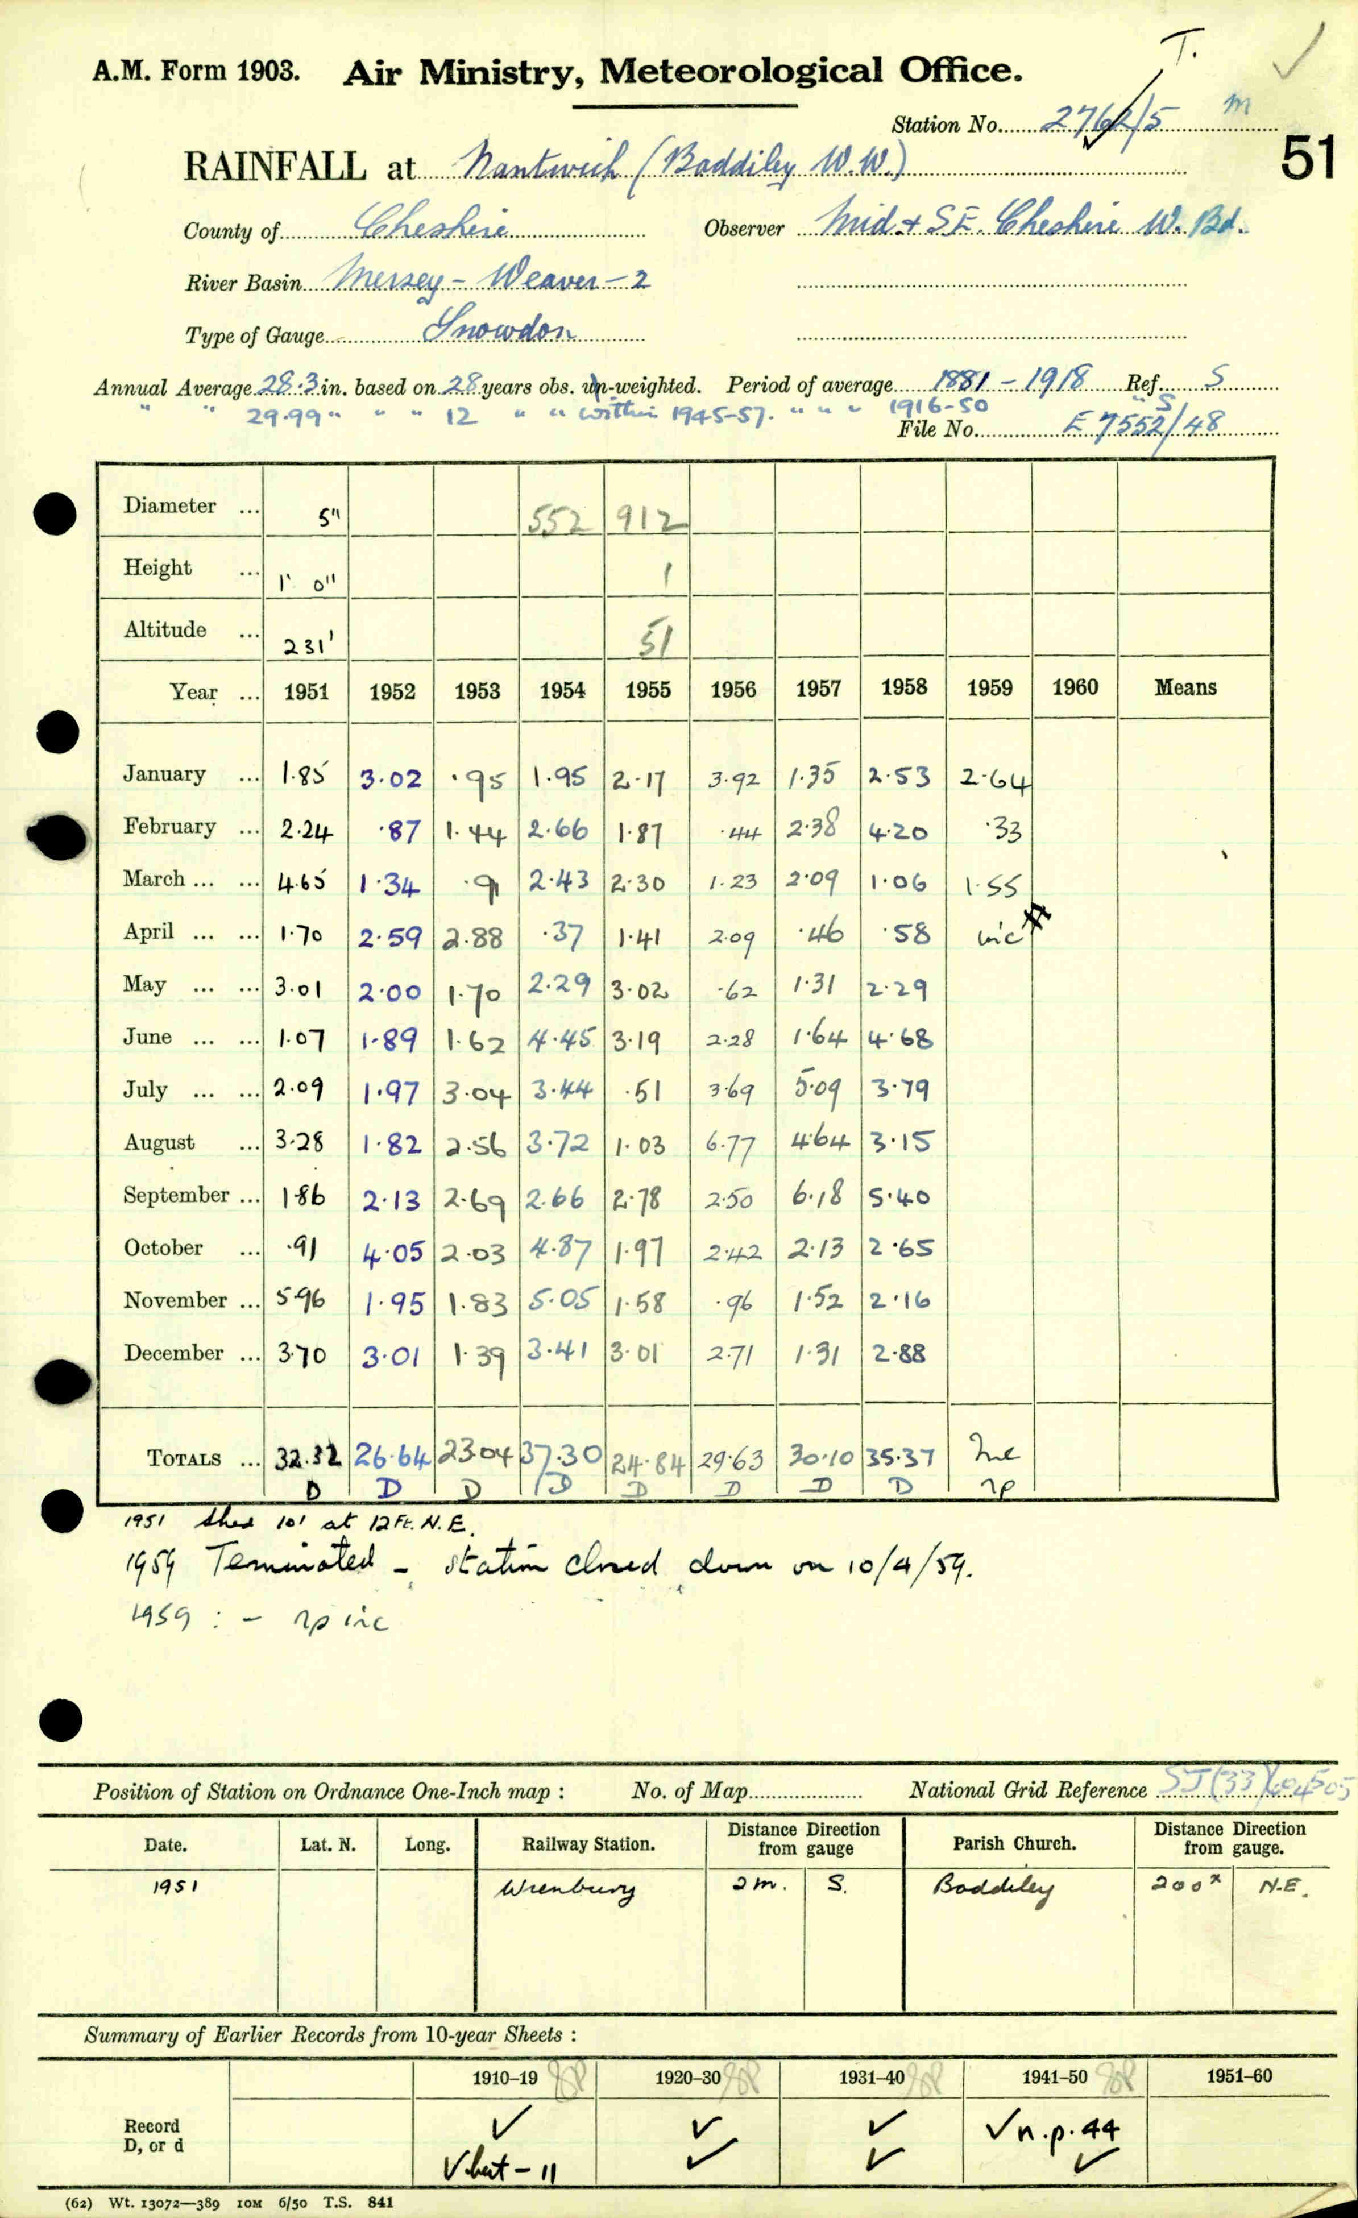 T.
A.M. Form 1903. Air Ministry, Meteorological Office.
Station No. 2762/5 m
RAINFALL at Nantwich (Baddiley W.W.) 51
County of Cheshire Observer Mid. & S.E. Cheshire W. Bd.
River Basin Mersey - Weaver - 2
Type of Gauge Snowdon
Annual Average 28.3 in. based on 28 years obs. un-weighted. Period of average 1881 - 1918 Ref. S
" " 29.99 " " " 12 " " within 1945-57. " " " 1916-50 " S
File No. E 7552/48
Diameter ... 5" 552 912
Height ... 1' 0" 1
Altitude ... 231' 51
Year ... 1951 1952 1953 1954 1955 1956 1957 1958 1959 1960 Means
January ... 1.85 3.02 .95 1.95 2.17 3.92 1.35 2.53 2.64
February ... 2.24 .87 1.44 2.66 1.87 .44 2.38 4.20 .33
March ... ... 4.65 1.34 .91 2.43 2.30 1.23 2.09 1.06 1.55
April ... ... 1.70 2.59 2.88 .37 1.41 2.09 .46 .58 inc
May ... ... 3.01 2.00 1.70 2.29 3.02 .62 1.31 2.29
June ... ... 1.07 1.89 1.62 4.45 3.19 2.28 1.64 4.68
July ... ... 2.09 1.97 3.04 3.44 .51 3.69 5.09 3.79
August ... 3.28 1.82 2.56 3.72 1.03 6.77 4.64 3.15
September ... 1.86 2.13 2.69 2.66 2.78 2.50 6.18 5.40
October ... .91 4.05 2.03 4.87 1.97 2.42 2.13 2.65
November ... 5.96 1.95 1.83 5.05 1.58 .96 1.52 2.16
December ... 3.70 3.01 1.39 3.41 3.01 2.71 1.31 2.88
TOTALS ... 32.32 26.64 23.04 37.30 24.84 29.63 30.10 35.37 Inc
D D D D D D D D np
1951 Shed 10' at 12 Ft. N.E.
1959 Terminated - station closed down on 10/4/59.
1959 : - np inc
Position of Station on Ordnance One-Inch map : No. of Map National Grid Reference SJ (33) 604505
Date. Lat. N. Long. Railway Station. Distance Direction from gauge Parish Church. Distance Direction from gauge.
1951 Wrenbury 2m. S. Baddiley 200x N.E.
Summary of Earlier Records from 10-year Sheets :
1910-19 1920-30 1931-40 1941-50 1951-60
Record
D, or d
✓ ✓ ✓ ✓ n.p. 44
✓ but - 11 ✓ ✓ ✓
(62) Wt. 13072—389 10M 6/50 T.S. 841